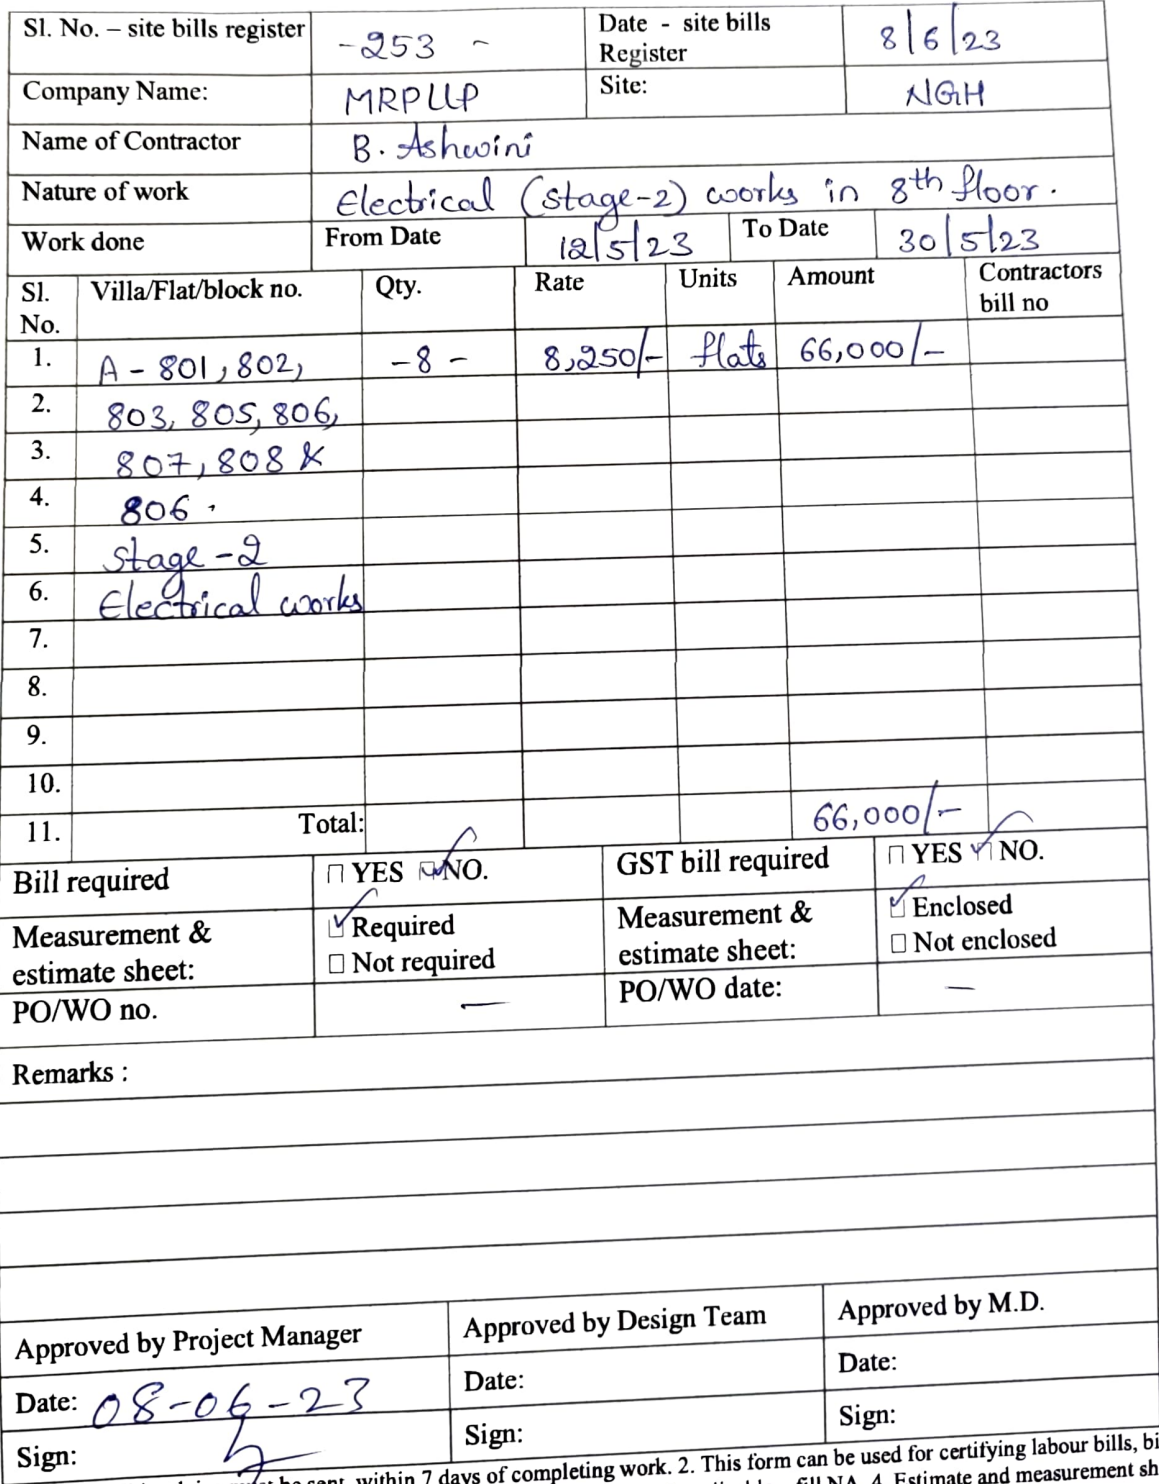 Sl. No. – site bills register -253 - Date - site bills Register 8/6/23
Company Name: MRPLLP Site: NGH
Name of Contractor B. Ashwini
Nature of work Electrical (stage-2) works in 8th floor.
Work done From Date 12/5/23 To Date 30/5/23
Sl. No. Villa/Flat/block no. Qty. Rate Units Amount Contractors bill no
1. A - 801, 802, -8- 8,250/- flats 66,000/-
2. 803, 805, 806,
3. 807, 808 &
4. 806.
5. Stage -2
6. Electrical works
7.
8.
9.
10.
11. Total: 66,000/-
Bill required YES NO. GST bill required YES NO.
Measurement & estimate sheet: Required Not required Measurement & estimate sheet: Enclosed Not enclosed
PO/WO no. — PO/WO date: —
Remarks :
Approved by Project Manager Approved by Design Team Approved by M.D.
Date: 08-06-23 Date: Date:
Sign: Sign: Sign:
within 7 days of completing work. 2. This form can be used for certifying labour bills, bi
fill NA. 4. Estimate and measurement sh